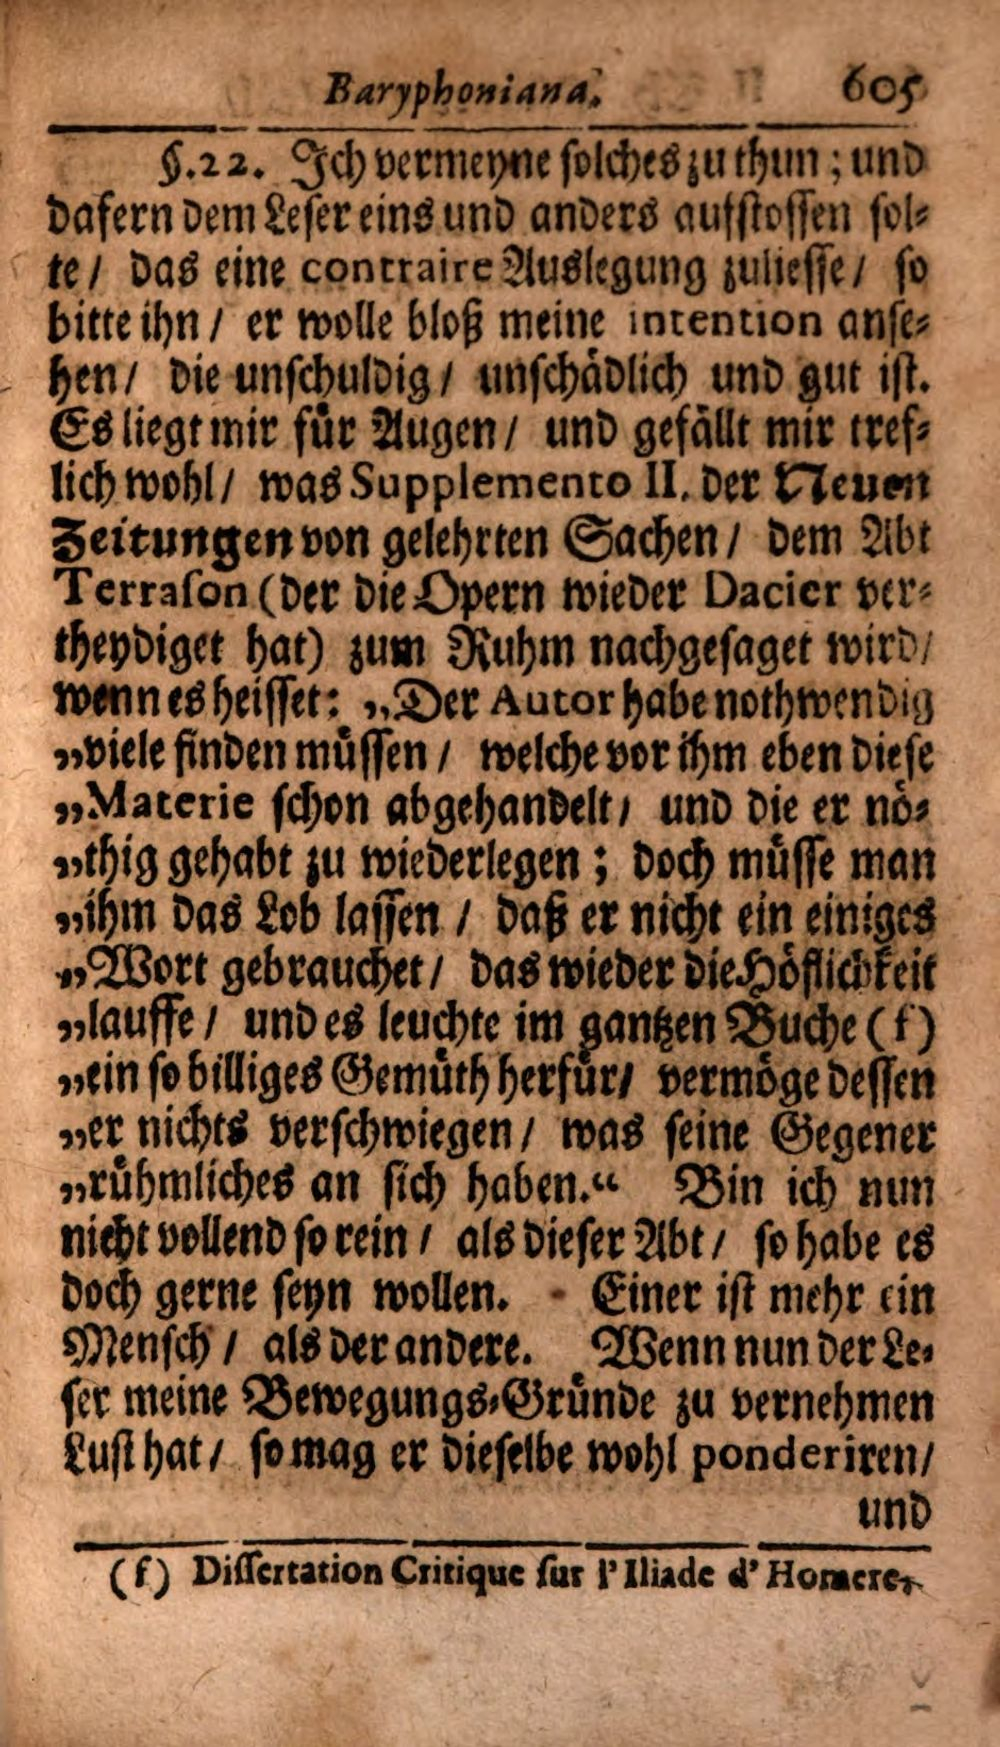 Baryphoniana. 605
§.22. Ich vermeyne solches zu thun; und
dafern dem Leser eins und anders aufstossen sol-
te / das eine contraire Auslegung zuliesse / so
bitte ihn / er wolle bloß meine intention anse-
hen / die unschuldig / unschädlich und gut ist.
Es liegt mir für Augen / und gefällt mir tref-
lich wohl / was Supplemento II. der Neuen
Zeitungen von gelehrten Sachen / dem Abt
Terrason (der die Opern wieder Dacier ver-
theydiget hat) zum Ruhm nachgesaget wird /
wenn es heisset: „Der Autor habe nothwendig
„viele finden müssen / welche vor ihm eben diese
„Materie schon abgehandelt / und die er nö-
„thig gehabt zu wiederlegen; doch müsse man
„ihm das Lob lassen / daß er nicht ein einiges
„Wort gebrauchet / das wieder die Höflichkeit
„lauffe / und es leuchte im gantzen Buche (f)
„ein so billiges Gemüth herfür / vermöge dessen
„er nichts verschwiegen / was seine Gegener
„rühmliches an sich haben.“ Bin ich nun
nicht vollend so rein / als dieser Abt / so habe es
doch gerne seyn wollen. Einer ist mehr ein
Mensch / als der andere. Wenn nun der Le-
ser meine Bewegungs-Gründe zu vernehmen
Lust hat / so mag er dieselbe wohl ponderiren /
und
(f) Dissertation Critique sur l'Iliade d'Homere,